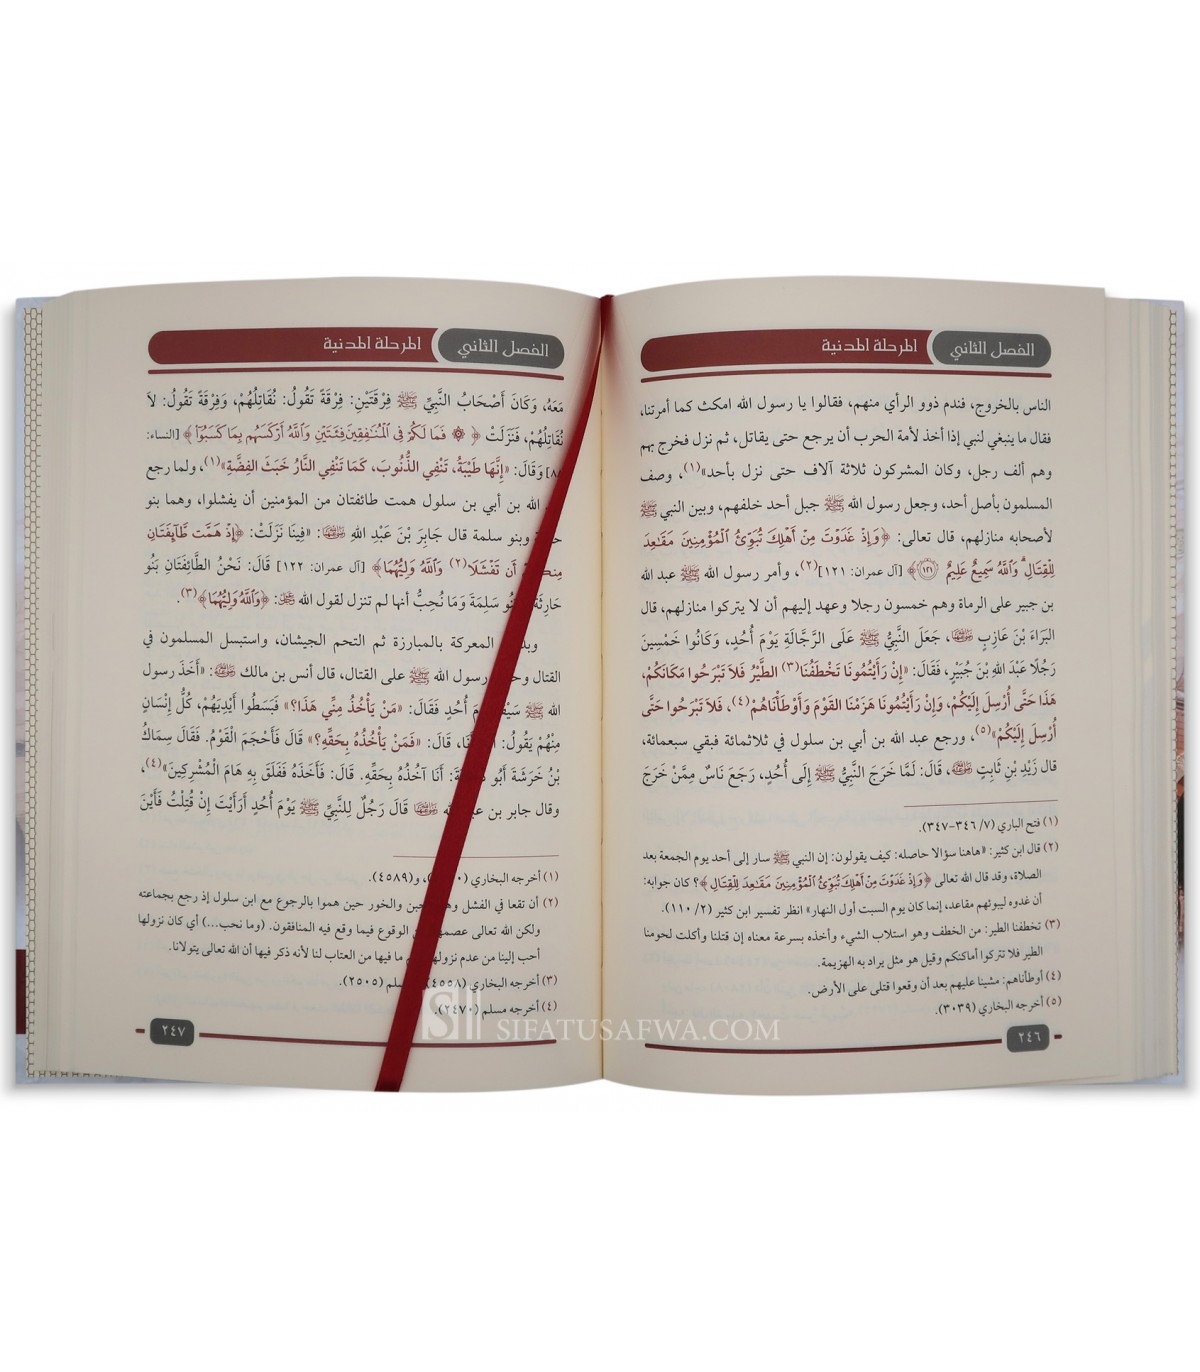 الفصل الثاني المرحلة المدنية
الناس بالخروج، فندم ذوو الرأي منهم، فقالوا يا رسول الله امكث كما أمرتنا،
فقال ما ينبغي لنبي إذا أخذ لأمة الحرب أن يرجع حتى يقاتل، ثم نزل فخرج بهم
وهم ألف رجل، وكان المشركون ثلاثة آلاف حتى نزل بأحد»(١)، وصف
المسلمون بأصل أحد، وجعل رسول الله ﷺ جبل أحد خلفهم، وبين النبي ﷺ
لأصحابه منازلهم، قال تعالى: ﴿وَإِذْ غَدَوْتَ مِنْ أَهْلِكَ تُبَوِّئُ الْمُؤْمِنِينَ مَقَاعِدَ
لِلْقِتَالِ وَاللَّهُ سَمِيعٌ عَلِيمٌ ١٢١﴾ [آل عمران: ١٢١](٢)، وأمر رسول الله ﷺ عبد الله
بن جبير على الرماة وهم خمسون رجلا وعهد إليهم أن لا يتركوا منازلهم، قال
البَرَاءَ بْنَ عَازِبٍ رضي الله عنهما، جَعَلَ النَّبِيُّ ﷺ عَلَى الرَّجَّالَةِ يَوْمَ أُحُدٍ، وَكَانُوا خَمْسِينَ
رَجُلًا عَبْدَ اللهِ بْنَ جُبَيْرٍ، فَقَالَ: «إِنْ رَأَيْتُمُونَا تَخْطَفُنَا(٣) الطَّيْرُ فَلاَ تَبْرَحُوا مَكَانَكُمْ،
هَذَا حَتَّى أُرْسِلَ إِلَيْكُمْ، وَإِنْ رَأَيْتُمُونَا هَزَمْنَا القَوْمَ وَأَوْطَأْنَاهُمْ(٤)، فَلاَ تَبْرَحُوا حَتَّى
أُرْسِلَ إِلَيْكُمْ»(٥)، ورجع عبد الله بن أبي بن سلول في ثلاثمائة فبقي سبعمائة،
قال زَيْدِ بْنِ ثَابِتٍ رضي الله عنه، قَالَ: لَمَّا خَرَجَ النَّبِيُّ ﷺ إِلَى أُحُدٍ، رَجَعَ نَاسٌ مِمَّنْ خَرَجَ
(١) فتح الباري (٧/ ٣٤٦-٣٤٧).
(٢) قال ابن كثير: «هاهنا سؤالا حاصله: كيف يقولون: إن النبي ﷺ سار إلى أحد يوم الجمعة بعد
الصلاة، وقد قال الله تعالى ﴿وَإِذْ غَدَوْتَ مِنْ أَهْلِكَ تُبَوِّئُ الْمُؤْمِنِينَ مَقَاعِدَ لِلْقِتَالِ﴾؟ كان جوابه:
أن غدوه ليبوئهم مقاعد، إنما كان يوم السبت أول النهار» انظر تفسير ابن كثير (٢/ ١١٠).
(٣) تخطفنا الطير: من الخطف وهو استلاب الشيء وأخذه بسرعة معناه إن قتلنا وأكلت لحومنا
الطير فلا تتركوا أماكنكم وقيل هو مثل يراد به الهزيمة.
(٤) أوطأناهم: مشينا عليهم بعد أن وقعوا قتلى على الأرض.
(٥) أخرجه البخاري (٣٠٣٩).
٢٤٦
الفصل الثاني المرحلة المدنية
مَعَهُ، وَكَانَ أَصْحَابُ النَّبِيِّ ﷺ فِرْقَتَيْنِ: فِرْقَةً تَقُولُ: نُقَاتِلُهُمْ، وَفِرْقَةً تَقُولُ: لاَ
نُقَاتِلُهُمْ، فَنَزَلَتْ ﴿۞ فَمَا لَكُمْ فِي الْمُنَافِقِينَ فِئَتَيْنِ وَاللَّهُ أَرْكَسَهُم بِمَا كَسَبُوا﴾ [النساء:
٨٨] وَقَالَ: «إِنَّهَا طَيْبَةُ، تَنْفِي الذُّنُوبَ، كَمَا تَنْفِي النَّارُ خَبَثَ الفِضَّةِ»(١)، ولما رجع
الله بن أبي بن سلول همت طائفتان من المؤمنين أن يفشلوا، وهما بنو
وبنو سلمة قال جَابِرَ بْنَ عَبْدِ اللهِ رضي الله عنهما: «فِينَا نَزَلَتْ: ﴿إِذْ هَمَّت طَّائِفَتَانِ
أَن تَفْشَلَا(٢) وَاللَّهُ وَلِيُّهُمَا﴾ [آل عمران: ١٢٢] قَالَ: نَحْنُ الطَّائِفَتَانِ بَنُو
حَارِثَةَ سَلِمَةَ وَمَا نُحِبُّ أنها لم تنزل لقول الله ﷻ: ﴿وَاللَّهُ وَلِيُّهُمَا﴾(٣).
المعركة بالمبارزة ثم التحم الجيشان، واستبسل المسلمون في
القتال رسول الله ﷺ على القتال، قال أنس بن مالك رضي الله عنه: «أَخَذَ رَسول
الله ﷺ أُحُدٍ فَقَالَ: «مَنْ يَأْخُذُ مِنِّي هَذَا؟» فَبَسَطُوا أَيْدِيَهُمْ، كُلُّ إِنْسَانٍ
مِنْهُمْ يَقُولُ: قَالَ: «فَمَنْ يَأْخُذُهُ بِحَقِّهِ؟» قَالَ فَأَحْجَمَ الْقَوْمُ. فَقَالَ سِمَاكُ
بْنُ خَرَشَةَ أَبُو أَنَا آخُذُهُ بِحَقِّهِ. قَالَ: فَأَخَذَهُ فَفَلَقَ بِهِ هَامَ الْمُشْرِكِينَ»(٤)،
وقال جابر بن رضي الله عنهما قَالَ رَجُلٌ لِلنَّبِيِّ ﷺ يَوْمَ أُحُدٍ أَرَأَيْتَ إِنْ قُتِلْتُ فَأَيْنَ
(١) أخرجه البخاري و(٤٥٨٩).
(٢) أن تقعا في الفشل والخور حين هموا بالرجوع مع ابن سلول إذ رجع بجماعته
ولكن الله تعالى الوقوع فيما وقع فيه المنافقون. (وما نحب...) أي كان نزولها
أحب إلينا من عدم ما فيها من العتاب لنا لأنه ذكر فيها أن الله تعالى يتولانا.
(٣) أخرجه البخاري (٤٥٥٨) (٢٥٠٥).
(٤) أخرجه مسلم (٢٤٧٠).
٢٤٧
SIFATUSAFWA.COM